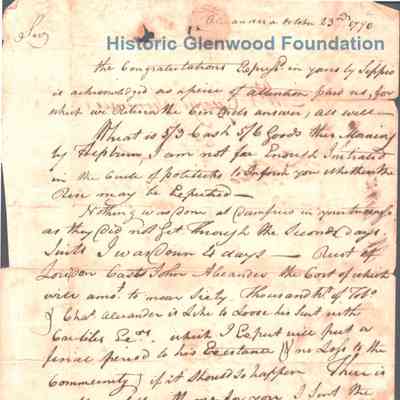 Alexandria October 23rd 1770
Historic Glenwood Foundation
Sir
the Congratulations Express'd in yours by Scipio
is acknowledged as a piece of attention paid us, for
which we Return the Com answer, all well—
What is 5/3 Cash 5/6 Goods the Meaning
by I am not far Enough Initiated
in the of politicks to Inform you whether the
Rise may be Expected—
Nothing was done at Dumfries in your
as they did not Get through the Second days
Suits I was down 4 days — Rust of
Loudon Casts John Alexander the Cost of which
will amot. to near Sixty Thousand lb of Tobo
Chas Alexander is like to Loose his Suit with
Carliles Exrs. which I Expect will put a
final period to his Existence & no Loss to the
Community if it should so happen There is
for you I Sent the